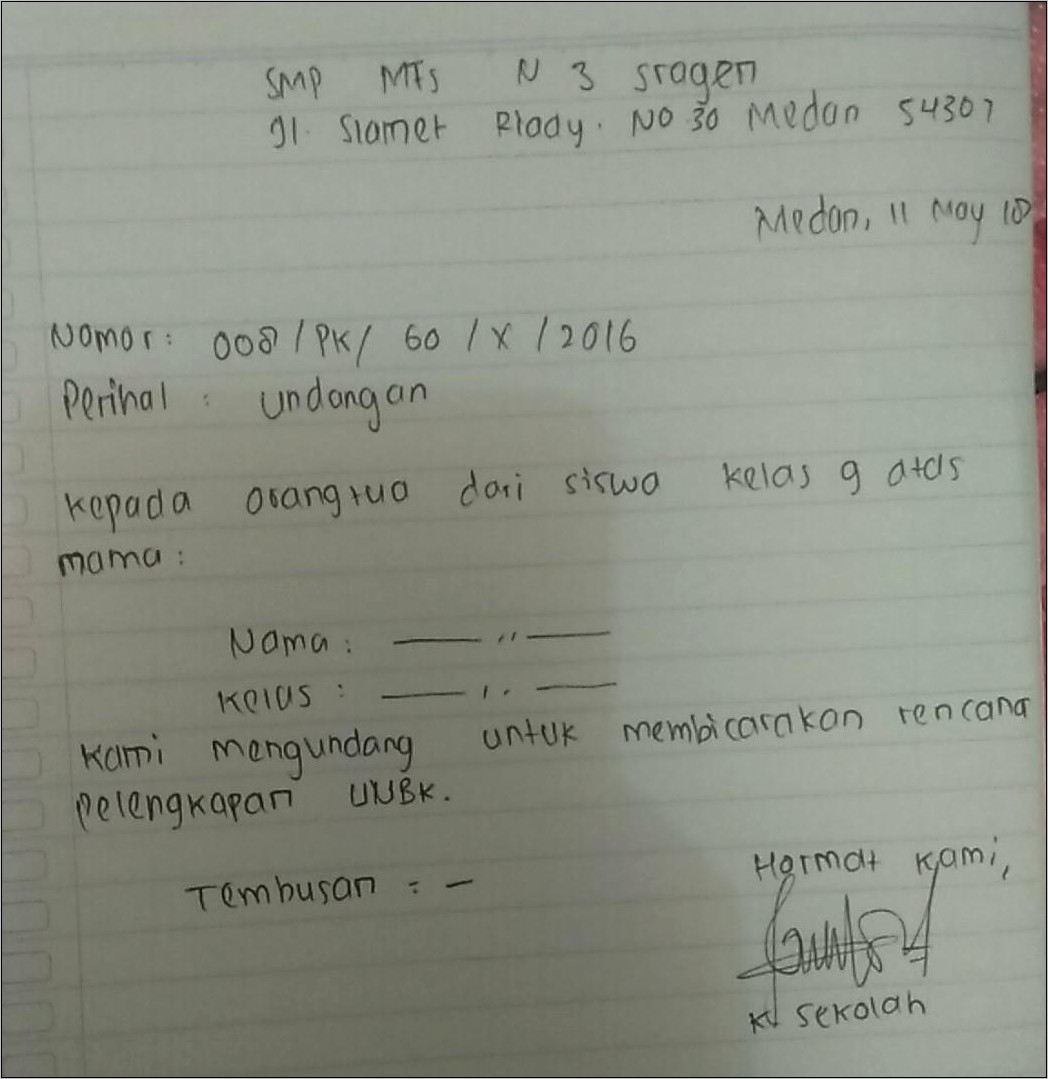 SMP MTs N 3 sragen
Jl. Slamet Riady. NO 30 Medan 54307
Medan, 11 May 18
Nomor: 008 / PK / 60 / X / 2016
Perihal : undangan
kepada orangtua dari siswa kelas 9 atas
mama :
Nama : —— ,, ——
Kelas : —— ,, ——
kami mengundang untuk membicarakan rencana
pelengkapan UNBK.
Tembusan : -
Hormat kami,
K sekolah